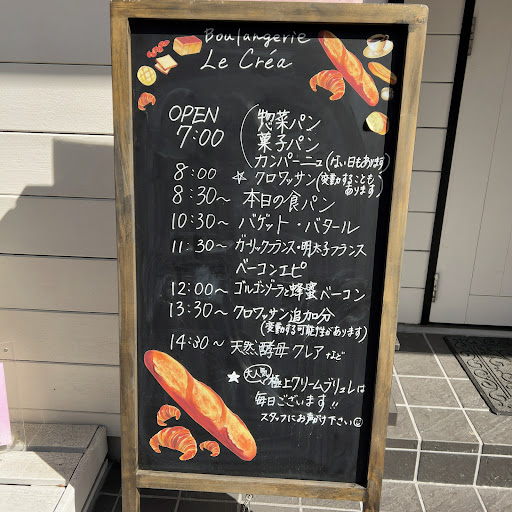 Boulangerie
Le Créa
OPEN
7:00
惣菜パン
菓子パン
カンパーニュ(ない日もあります)
8:00 ☆ クロワッサン(変動することもあります)
8:30〜 本日の食パン
10:30〜 バゲット・バタール
11:30〜 ガーリックフランス・明太子フランス
ベーコンエピ
12:00〜 ゴルゴンゾーラと蜂蜜 ベーコン
13:30〜 クロワッサン追加分
(変動する可能性があります)
14:30〜 天然酵母 クレア など
★ 大人気 極上クリームブリュレは
毎日ございます!!
スタッフにお声がけ下さい